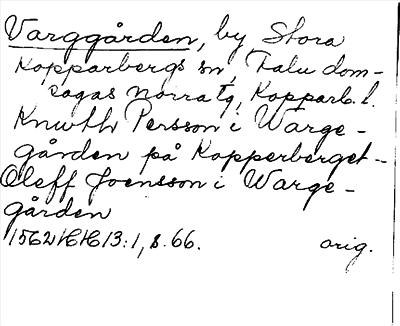 Varggården, by Stora
Kopparbergs sn, Falu dom-
sagas Norra tg, Kopparb. l.
Knuth Persson i Warge-
gården på Kopperberget-
Oleff Joensson i Warge-
gården
1562 HH 13:1, s. 66. orig.